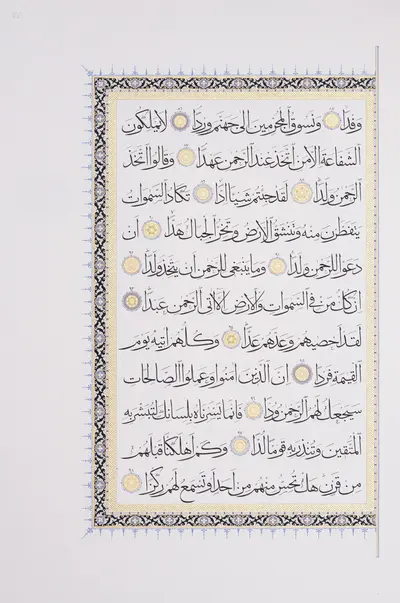 وفدا ونسوق المجرمين الى جهنم وردا لايملكون
الشفاعة الا من اتخذ عند الرحمن عهدا وقالوا اتخذ
الرحمن ولدا لقد جئتم شيئا ادا تكاد السموات
يتفطرن منه وتنشق الارض وتخر الجبال هدا ان
دعوا للرحمن ولدا وما ينبغى للرحمن ان يتخذ ولدا
ان كل من فى السموات والارض الا اتى الرحمن عبدا
لقد احصيهم وعدهم عدا وكلهم اتيه يوم
القيمة فردا ان الذين امنوا وعملوا الصالحات
سيجعل لهم الرحمن ودا فانما يسرناه بلسانك لتبشر به
المتقين وتنذر به قوما لدا وكم اهلكنا قبلهم
من قرن هل تحس منهم من احد او تسمع لهم ركزا